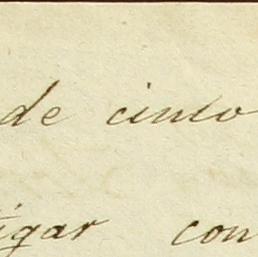 de cinto
igar con